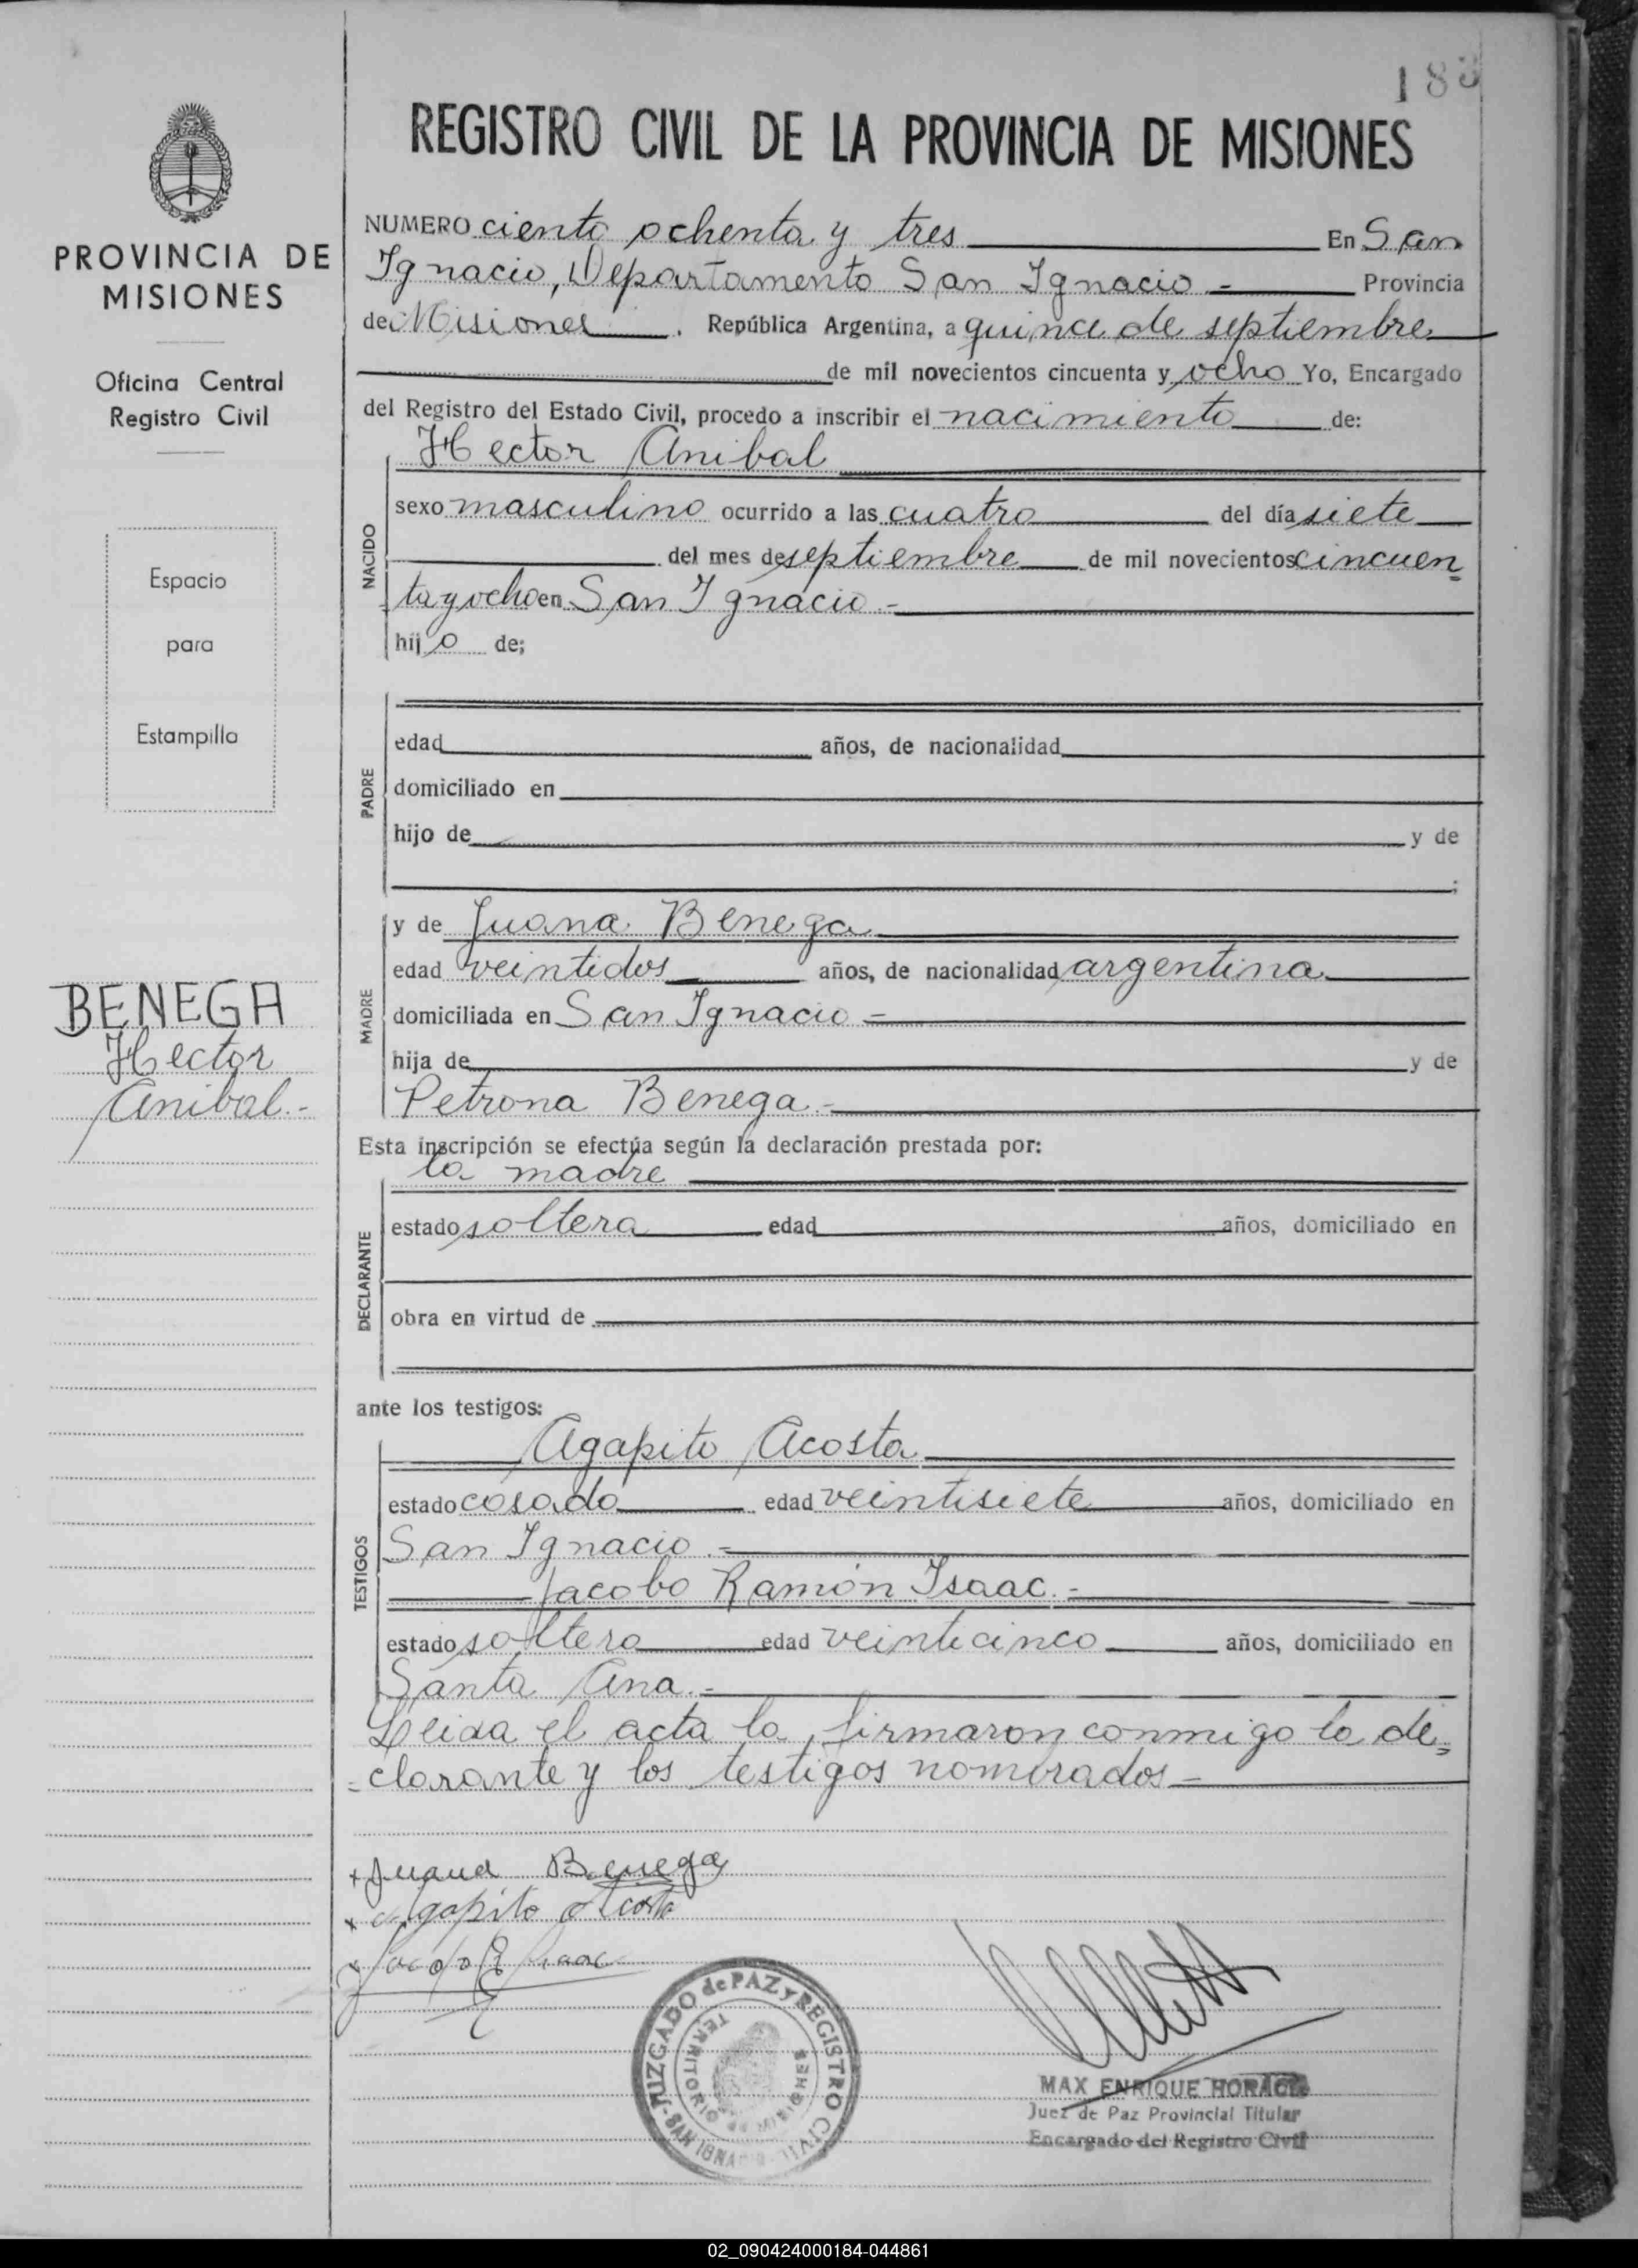 183
REGISTRO CIVIL DE LA PROVINCIA DE MISIONES
PROVINCIA DE
MISIONES
Oficina Central
Registro Civil
Espacio
para
Estampilla
BENEGA
Hector
Anibal.-
NUMERO ciento ochenta y tres En San
Ignacio, Departamento San Ignacio - Provincia
de Misiones . República Argentina, a quince de septiembre
de mil novecientos cincuenta y ocho Yo, Encargado
del Registro del Estado Civil, procedo a inscribir el nacimiento de:
Hector Anibal
NACIDO
sexo masculino ocurrido a las cuatro del día siete
del mes de septiembre de mil novecientos cincuen
ta y ocho en San Ignacio.-
hijo de;
PADRE
edad años, de nacionalidad
domiciliado en
hijo de y de
;
MADRE
y de Juana Benega
edad veintidos años, de nacionalidad argentina
domiciliada en San Ignacio -
hija de y de
Petrona Benega.-
Esta inscripción se efectúa según la declaración prestada por:
la madre
DECLARANTE
estado soltera edad años, domiciliado en
obra en virtud de
ante los testigos:
TESTIGOS
Agapito Acosta
estado casado edad veintisiete años, domiciliado en
San Ignacio.-
Jacobo Ramón Isaac.-
estado soltero edad veinticinco años, domiciliado en
Santa Ana.-
Leida el acta la firmaron conmigo la de=
=clarante y los testigos nombrados-
+ Juana Benega
+ Agapito Acosta
JUZGADO de PAZ y REGISTRO CIVIL
SAN IGNACIO
TERRITORIO DE MISIONES
MAX ENRIQUE HORACIO
Juez de Paz Provincial Titular
Encargado del Registro Civil
02_090424000184-044861